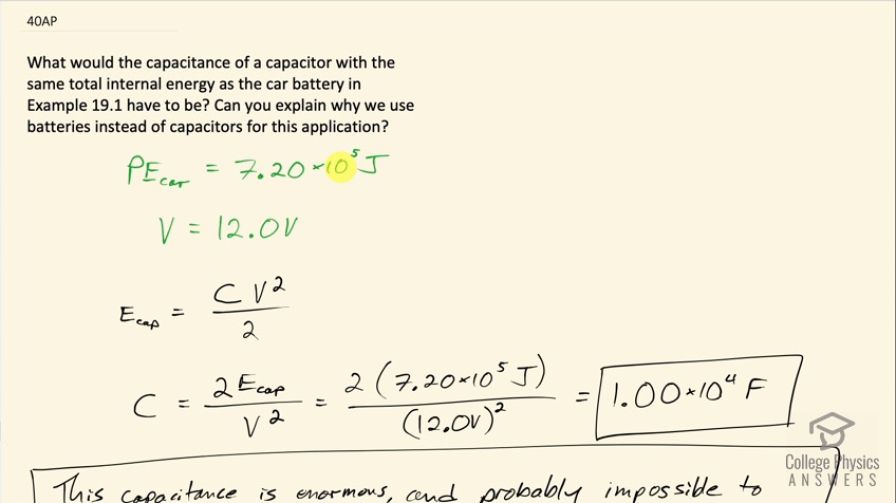 40AP
What would the capacitance of a capacitor with the
same total internal energy as the car battery in
Example 19.1 have to be? Can you explain why we use
batteries instead of capacitors for this application?
PE_car = 7.20×10^5 J
V = 12.0V
E_cap = CV^2/2
C = 2E_cap/V^2 = 2(7.20×10^5 J)/(12.0V)^2 = 1.00×10^4 F
College Physics
ANSWERS
This capacitance is enormous, and probably impossible to